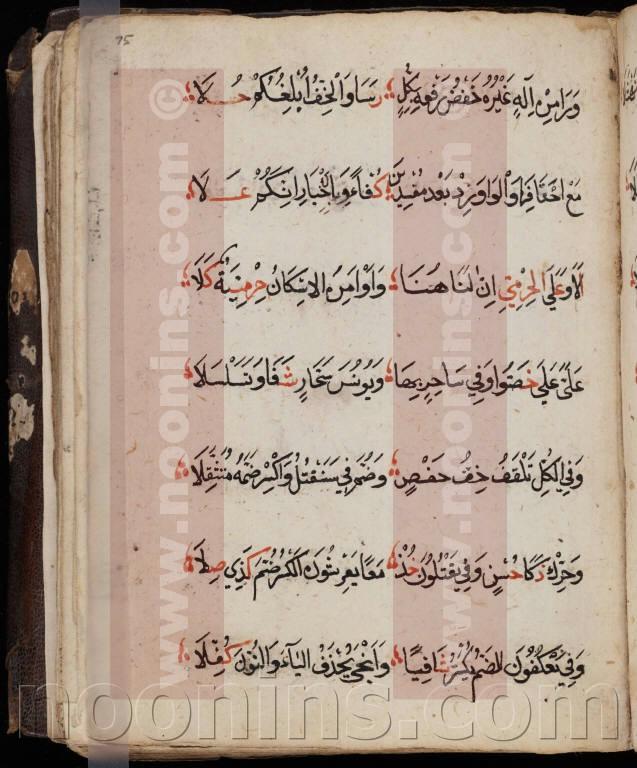 75
وَرَا مِنْ اِلَهٍ غَيْرُهُ خَفْضُ رَفْعِهِ بِكُلٍّ رَسَا وَالْخِفُّ اُبْلِغُكُمْ حَلَا
مَعَ احْقَافِهَا وَالْوَاوَ زِدْ بَعْدَ مُفْسِدِيْنَ كُفْاً وَبِالْاِخْبَارِ اِنَّكُمْ عَلَا
اَلَا وَعَلَى الْحِرْمِيُّ اِنَّ لَنَا هُنَا وَاَوْ اَمِنَ الْاِسْكَانُ حِرْمِيُّهُ كَلَا
عَلَيَّ عَلَى خَصُّوا وَفِي سَاحِرٍ بِهَا وَيُونُسَ سَحَّارٍ شَفَا وَتَسَلْسَلَا
وَفِي الْكُلِّ تَلْقَفُ خِفُّ حَفْصٍ وَضُمَّ فِي سَنَقْتُلُ وَاكْسِرْ ضَمَّهُ مُتَثَقِّلَا
وَحَرِّكْ ذَكَا حُسْنٍ وَفِي يَقْتُلُونَ خُذْ مَعًا يَعْرِشُونَ الْكَسْرُ ضُمَّ كَذِي صِلَا
وَفِي يَعْكُفُونَ الضَّمُّ يُكْسَرُ شَافِيًا وَاَنْجَى بِحَذْفِ الْيَاءِ وَالنُّونِ كُفِّلَا
© www.noonins.com
www.noonins.com
noonins.com